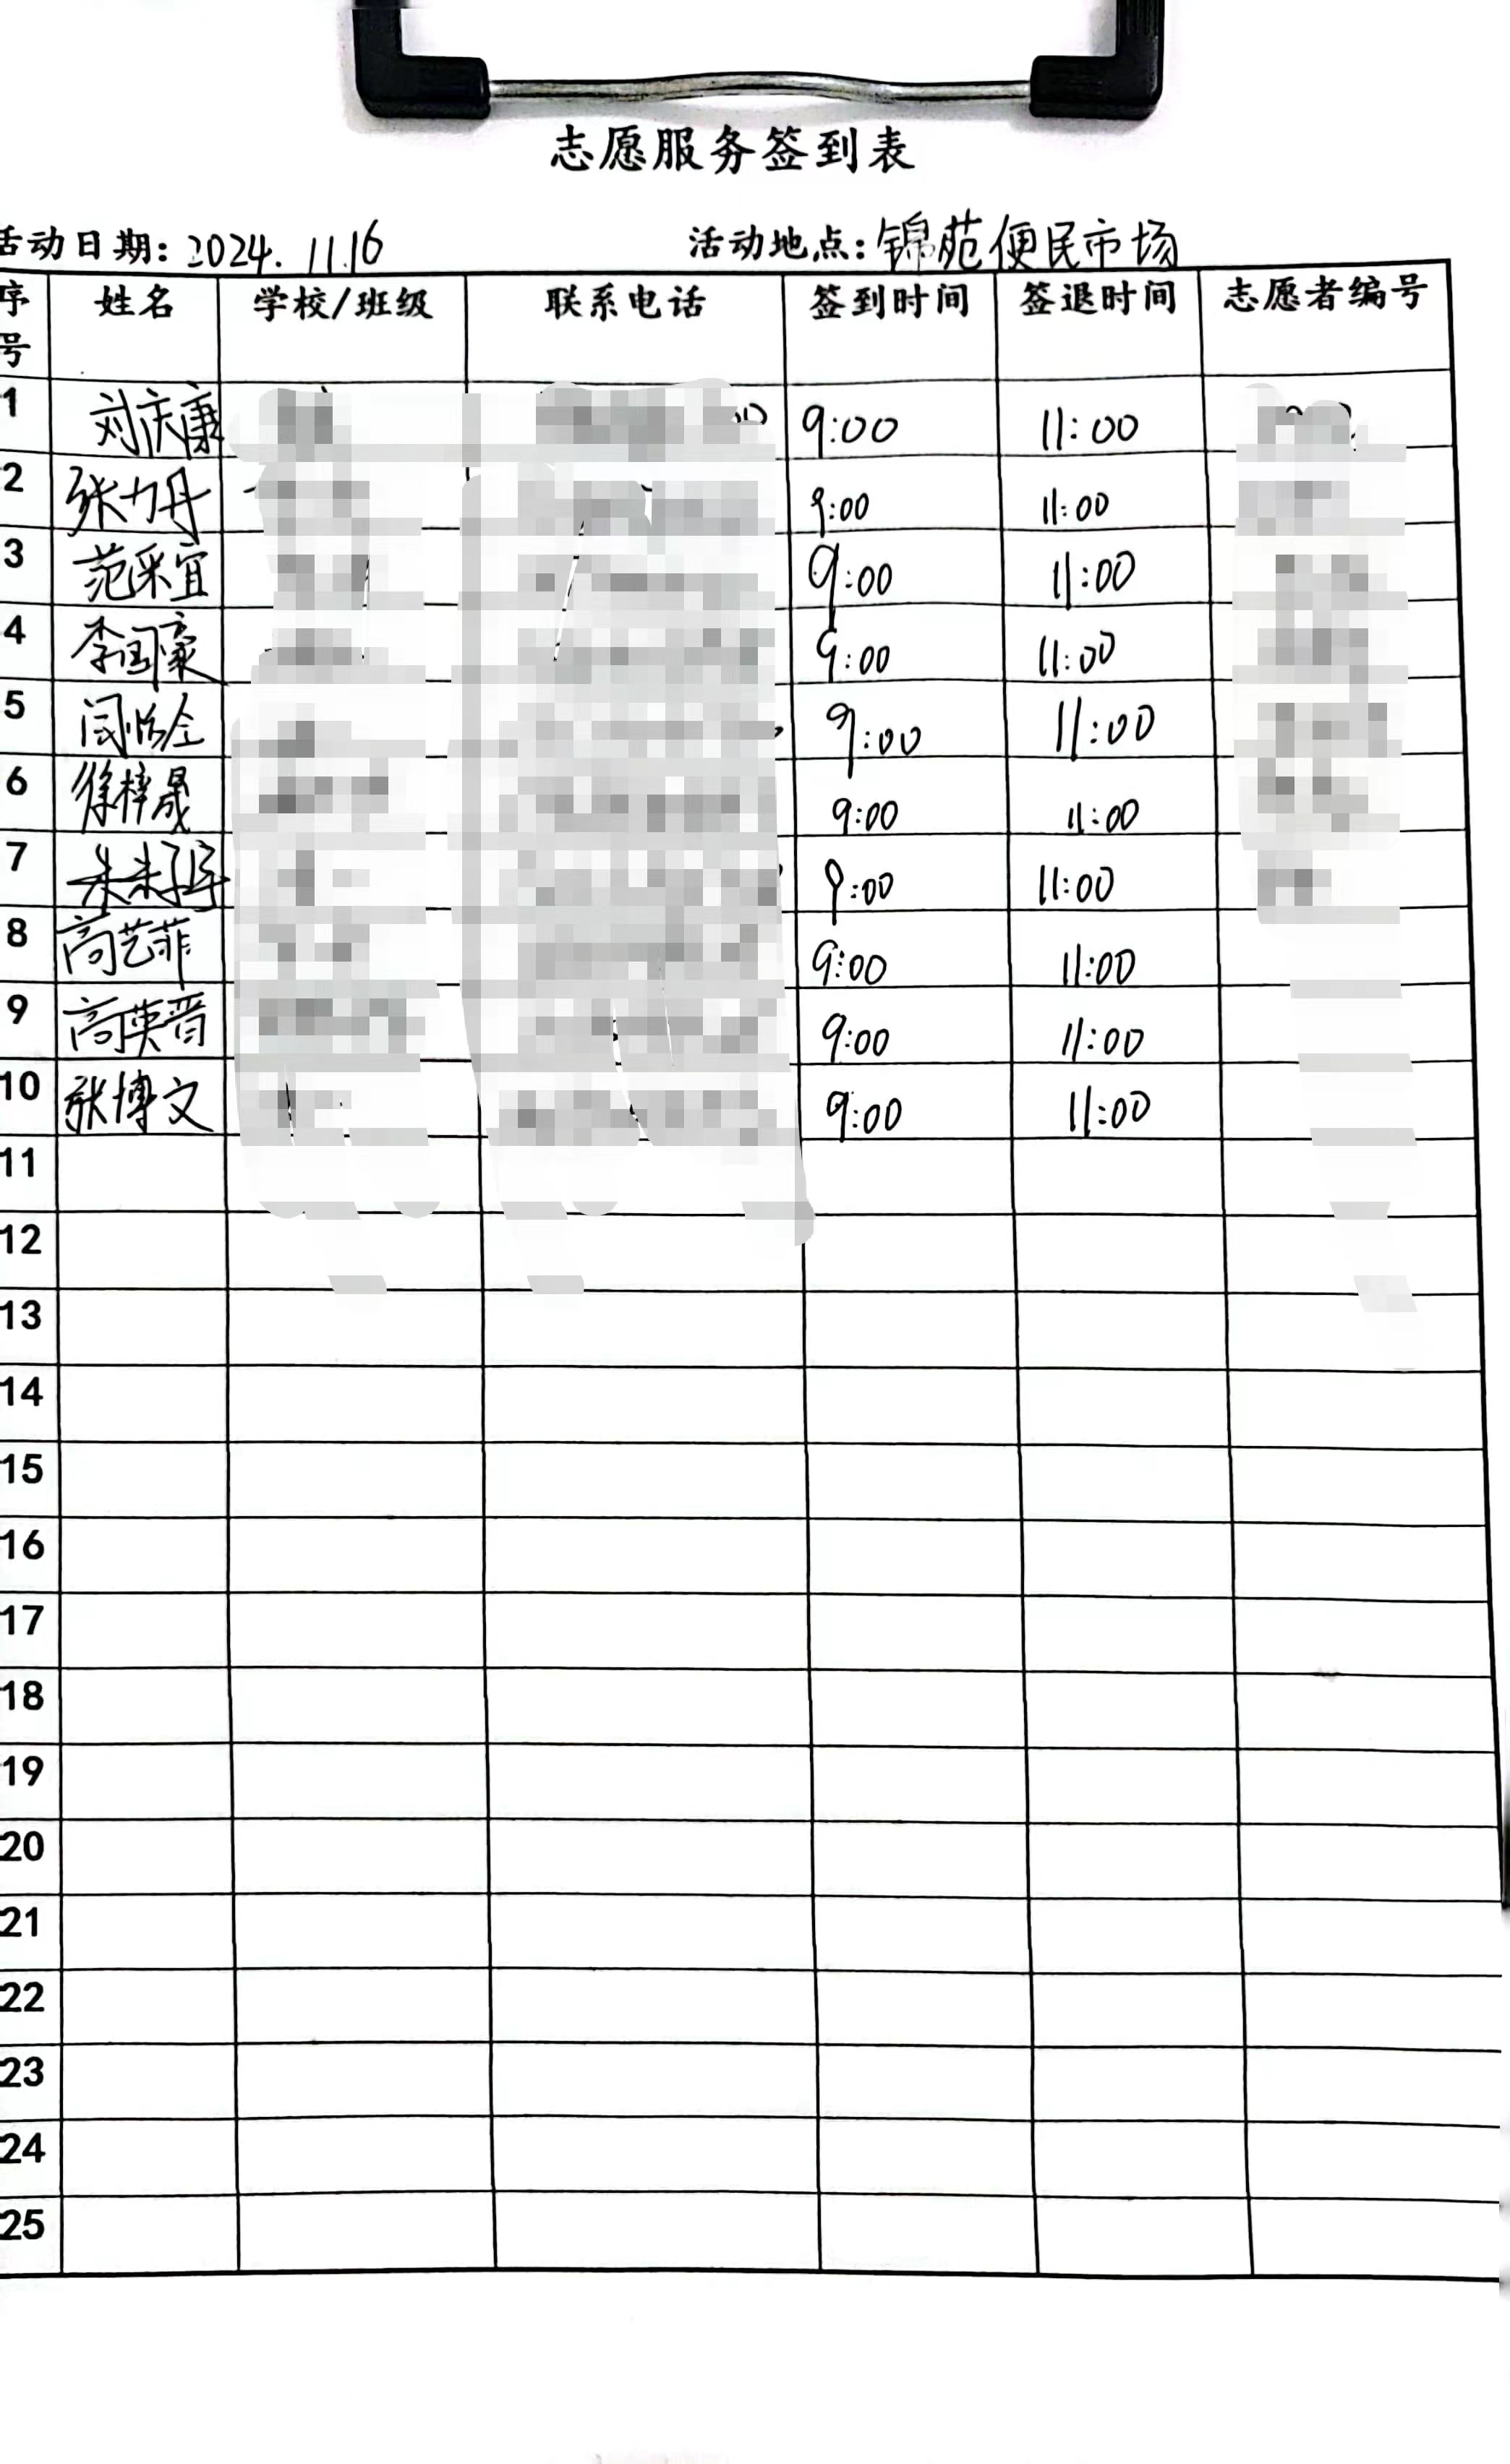 志愿服务签到表
活动日期: 2024.11.16 活动地点: 锦苑便民市场
序号 姓名 学校/班级 联系电话 签到时间 签退时间 志愿者编号
1 刘庆康 9:00 11:00
2 张力丹 9:00 11:00
3 范采宜 9:00 11:00
4 李国豪 9:00 11:00
5 9:00 11:00
6 徐梓晟 9:00 11:00
7 9:00 11:00
8 高艺菲 9:00 11:00
9 高英晋 9:00 11:00
10 张博文 9:00 11:00
11
12
13
14
15
16
17
18
19
20
21
22
23
24
25